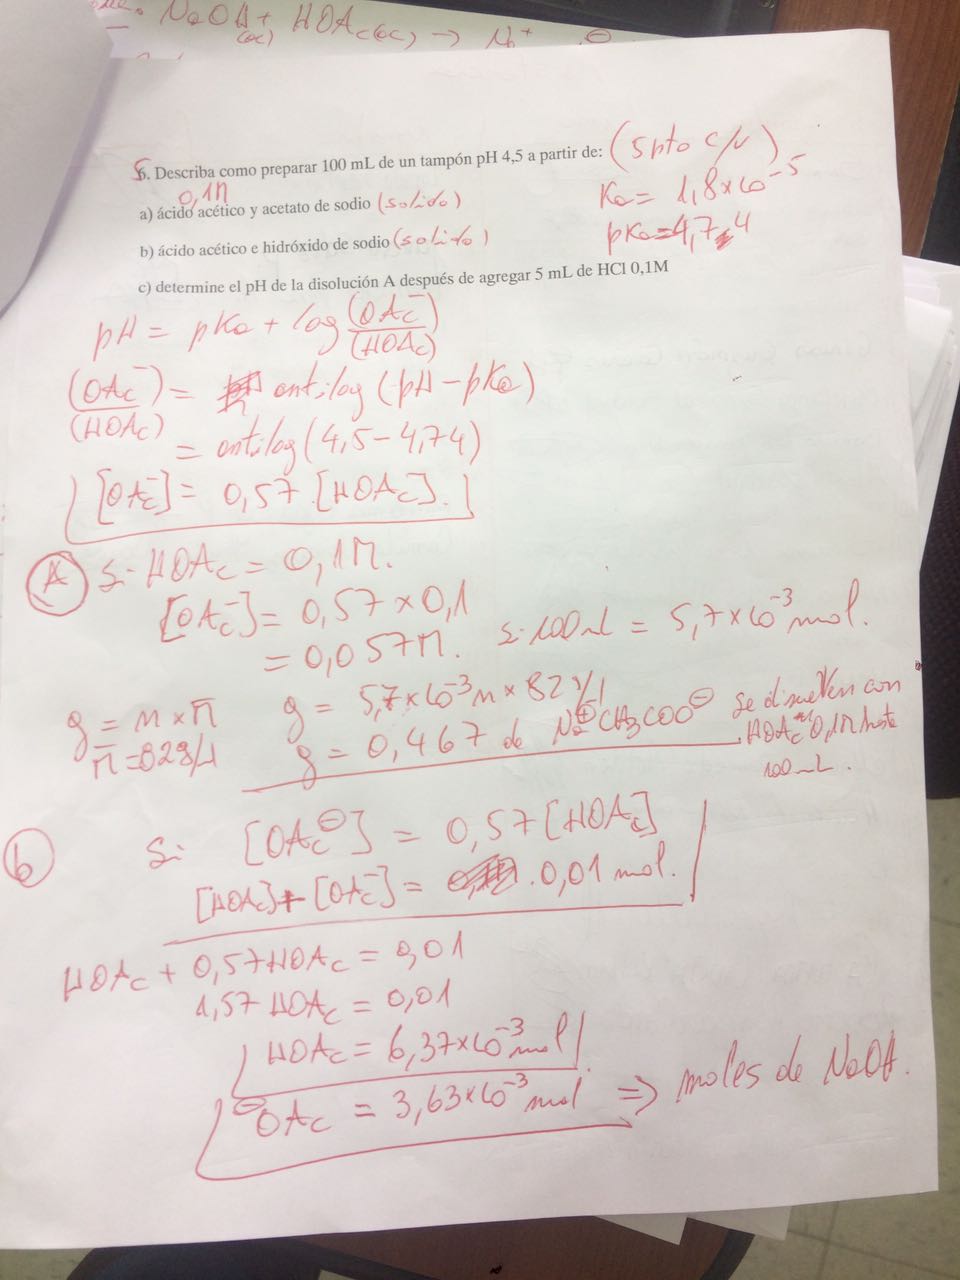 NaOH + HOAc(ac) → Na⁺
(ac)
5. Describa como preparar 100 mL de un tampón pH 4,5 a partir de: (5 pto c/u)
0,1M
a) ácido acético y acetato de sodio (solido)
Ka = 1,8x10⁻⁵
b) ácido acético e hidróxido de sodio (solido)
pKa = 4,74
c) determine el pH de la disolución A después de agregar 5 mL de HCl 0,1M
pH = pKa + log (OAc⁻)/(HOAc)
(OAc⁻)/(HOAc) = antilog (pH - pKa)
= antilog (4,5 - 4,74)
[OAc⁻] = 0,57 · [HOAc].
A si HOAc = 0,1M.
[OAc⁻] = 0,57 x 0,1
= 0,057M. si 100 mL = 5,7x10⁻³ mol.
g = n x M̄ g = 5,7x10⁻³ n x 82 g/
M̄ = 82 g/ g = 0,467 de Na⊕CH₃COO⊖ se disuelven con
HOAc 0,1M hasta
100 mL.
b Si [OAc⊖] = 0,57 [HOAc]
[HOAc] + [OAc⁻] = 0,01 mol.
HOAc + 0,57 HOAc = 0,01
1,57 HOAc = 0,01
HOAc = 6,37x10⁻³ mol
⊖OAc = 3,63x10⁻³ mol ⇒ moles de NaOH.